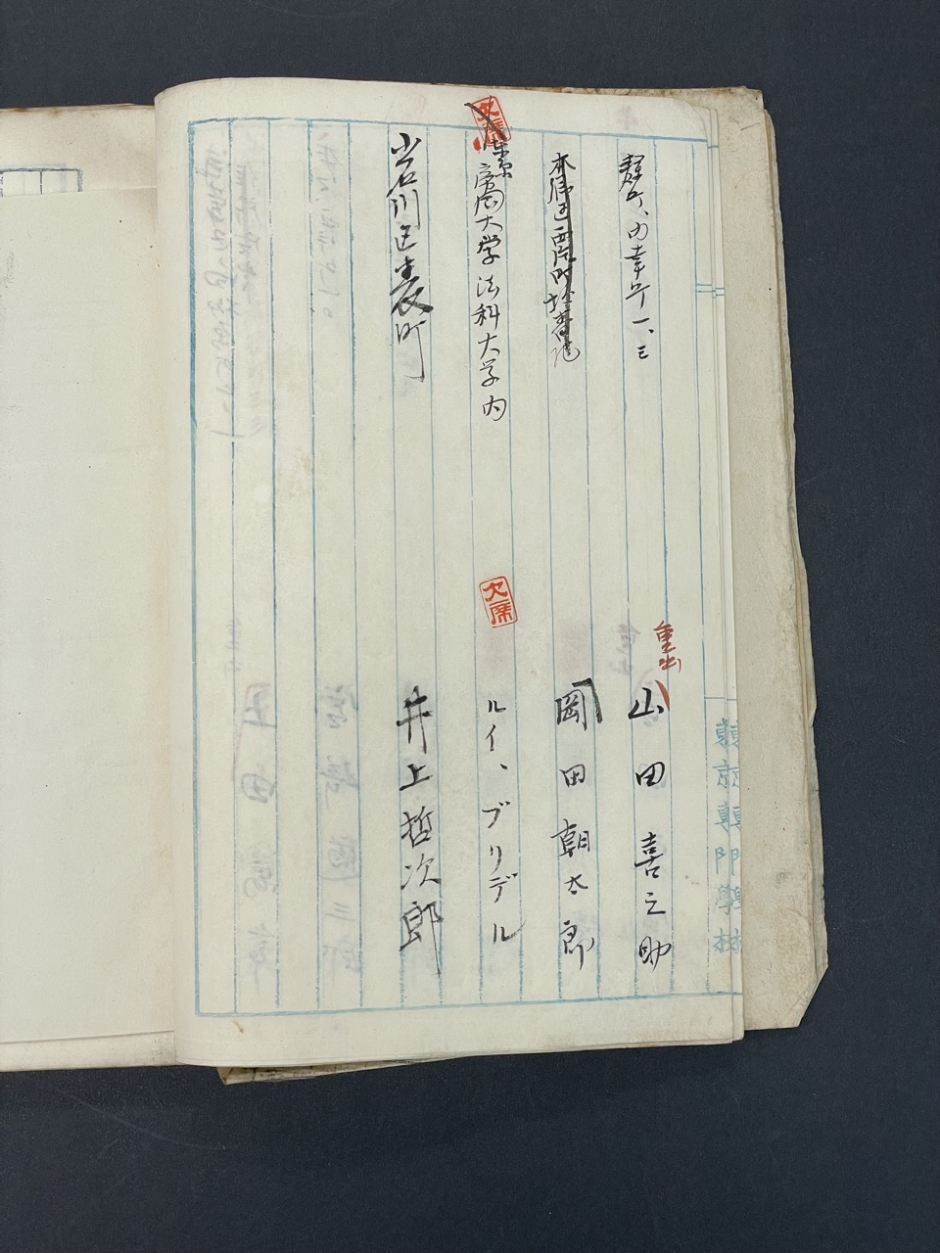 麹丁、内幸丁一、三
重出
山田喜之助
本郷区西片町
岡田朝太郎
欠席
東京帝国大学法科大学内
欠席
ルイ、ブリデル
小石川区表町
井上哲次郎
東京専門學校